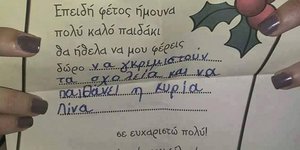 Επειδή φέτος ήμουνα
πολύ καλό παιδάκι
θα ήθελα να μου φέρεις
δώρο να γκριμιστούν
τα σχολεία και να
παιθάνει η κυρία
Λίνα
σε ευχαριστώ πολύ!